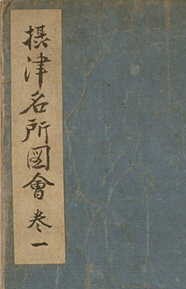 摂津名所圖會 巻一